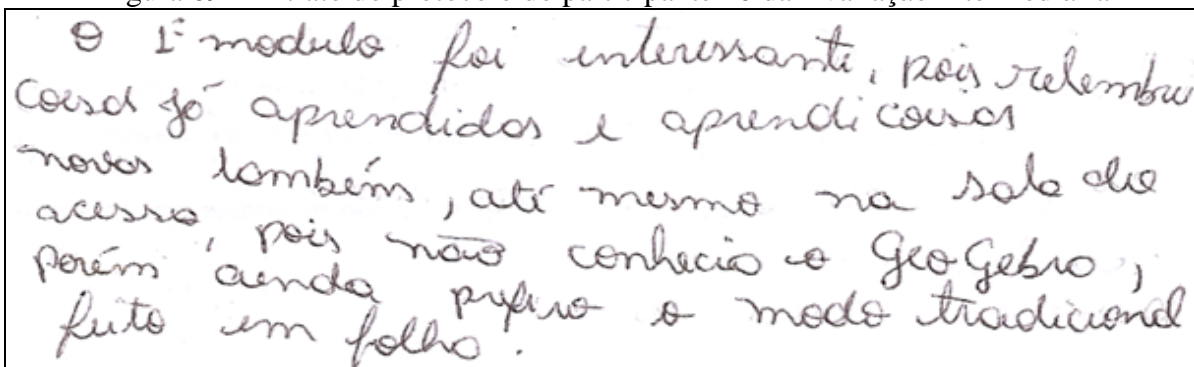 O 1º modulo foi interessante, pois relembrei
coisa já aprendidas e aprendi coisas
novas também, até mesmo na sala de
acesso, pois não conhecia o GeoGebra,
porém ainda prefiro o modo tradicional
feito em folha.